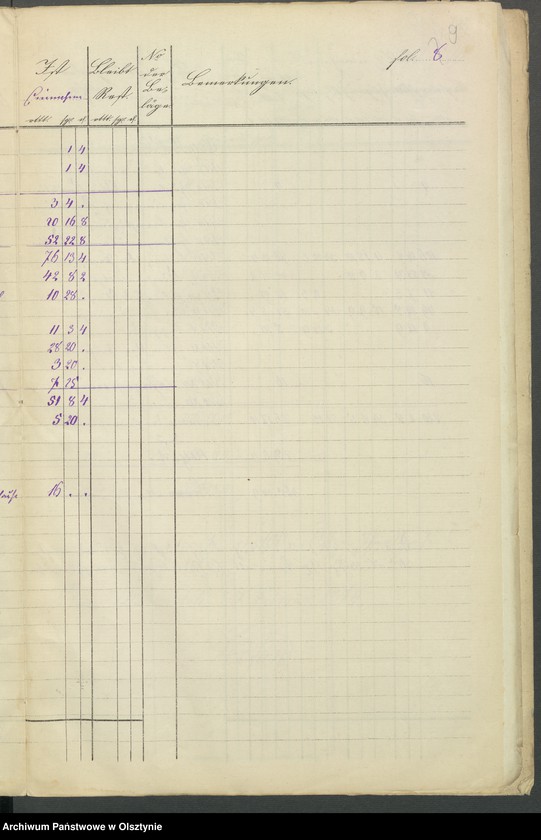 9
fol. 8
Ist Einnahm.
Bleibt Rest.
No der Beläge
Bemerkungen
rtlr. sgr. d. rtlr. sgr. d.
1 4
1 4
3 4 .
20 16 8
52 22 8
76 13 4
42 8 2
10 28 .
11 3 4
28 20 .
3 20 .
7 15
51 8 4
5 20 .
16 . .
Archiwum Państwowe w Olsztynie